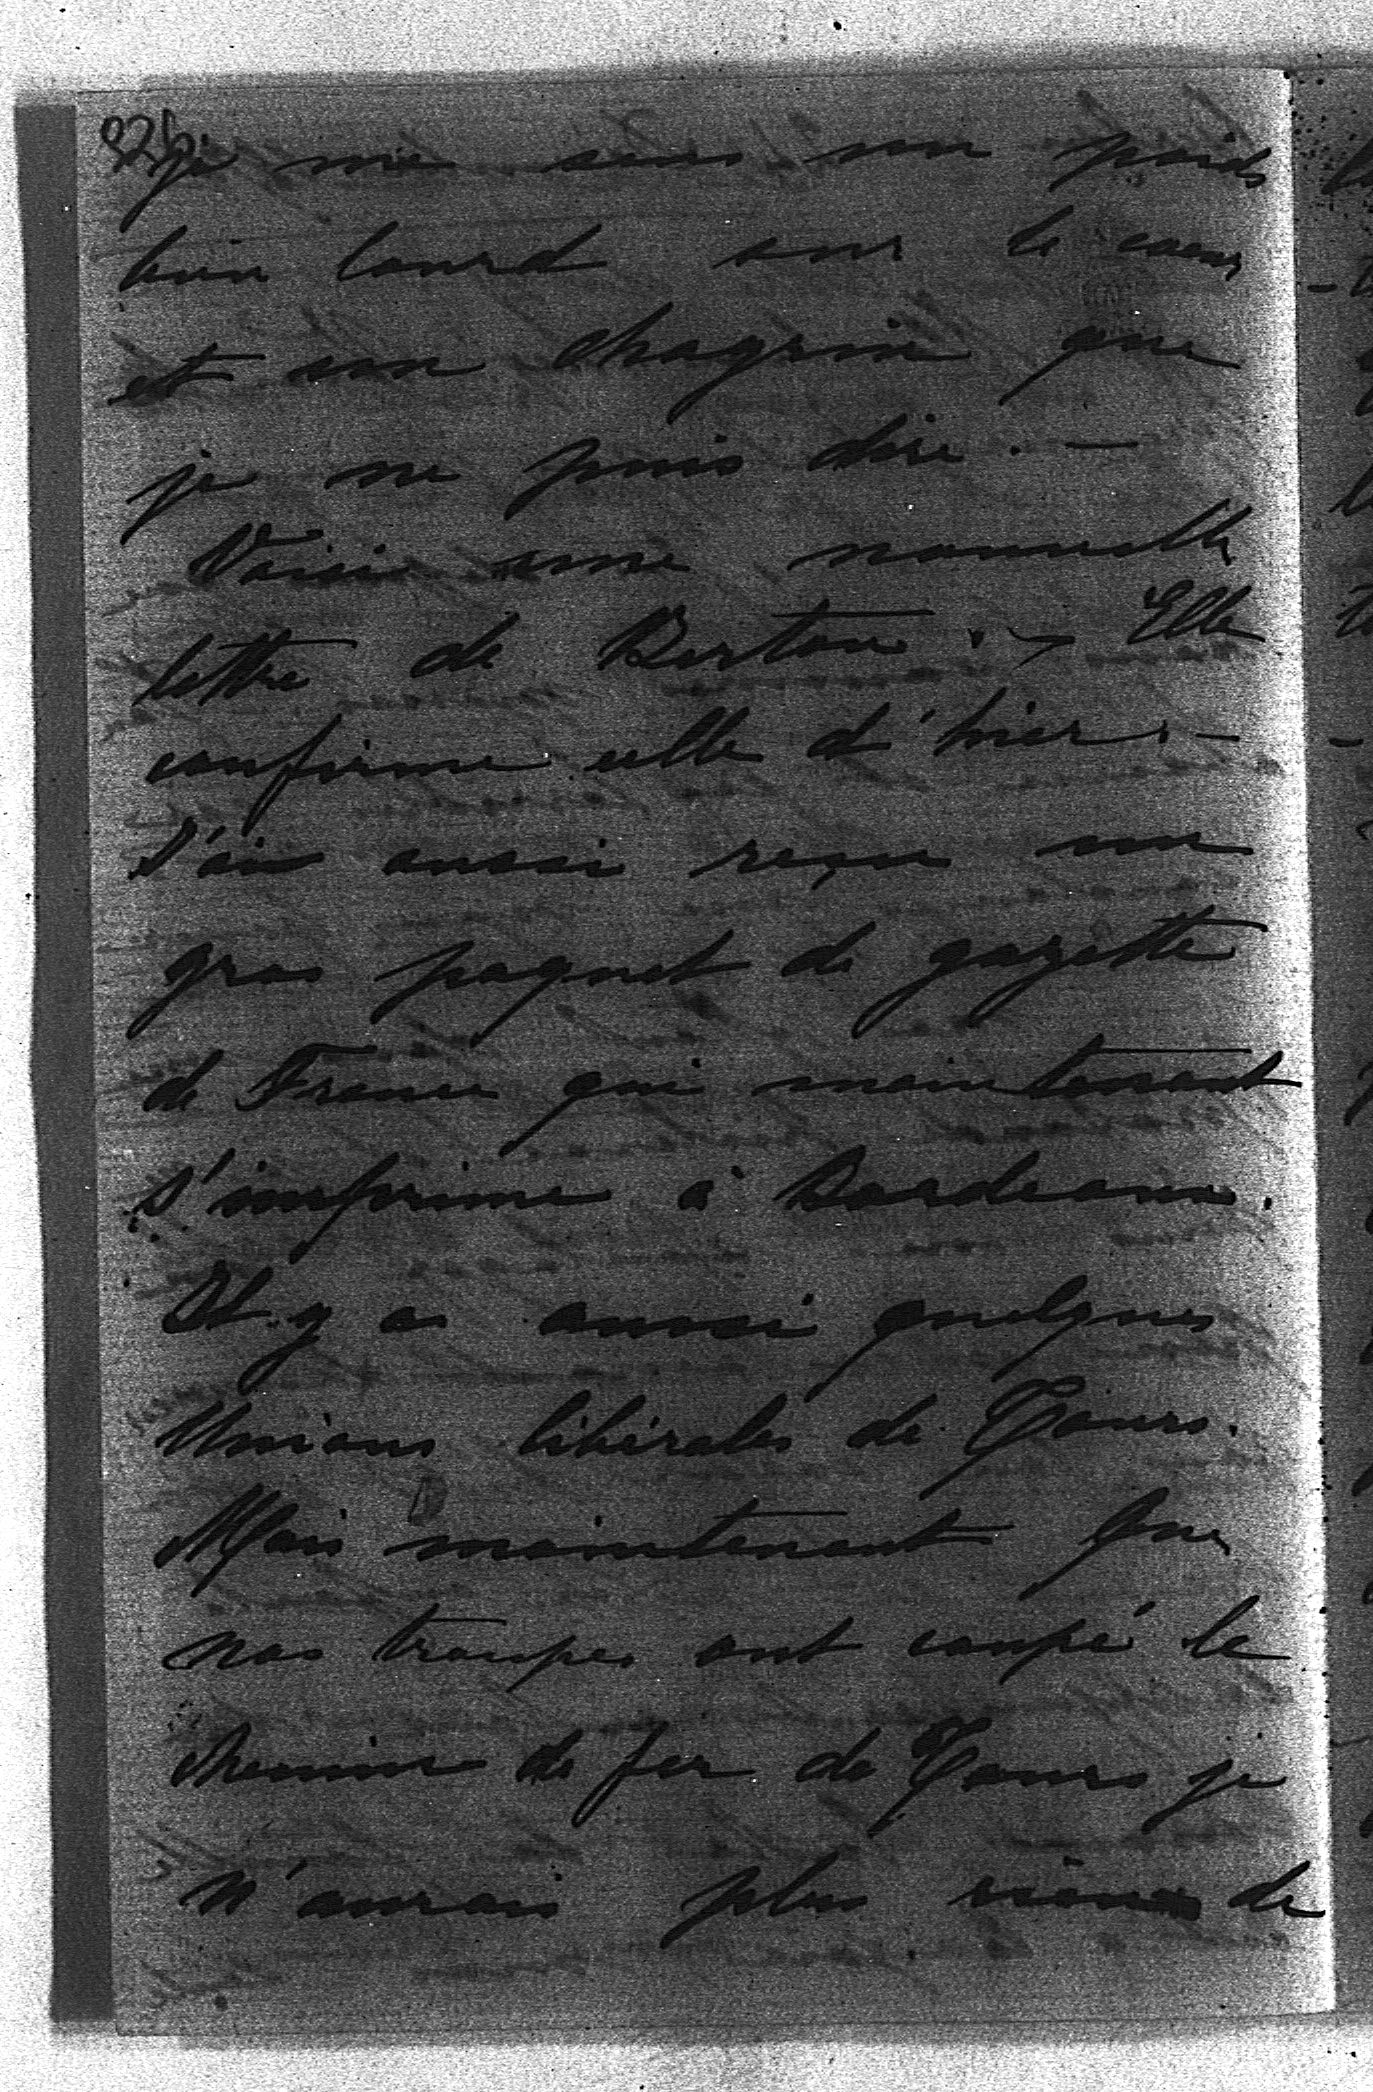 je me sens un poids
bien lourd sur le cœur
et un chagrin que
je ne puis dire. —
Voici une nouvelle
lettre de Bertou. — Elle
confirme celle d'hier. —
J'ai aussi reçu un
gros paquet de gazette
de France qui maintenant
s'imprime à Bordeaux.
Il y a aussi quelques
Unions libérales de Tours.
Mais maintenant que
nos troupes ont coupé le
chemin de fer de Tours je
n'aurais plus rien de